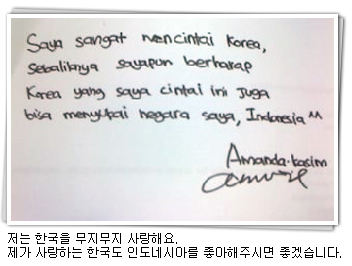 Saya sangat mencintai Korea,
Sebaliknya sayapun berharap
Korea yang saya cintai ini juga
bisa menyukai negara saya, Indonesia ^^
Amanda.kasim
저는 한국을 무지무지 사랑해요.
제가 사랑하는 한국도 인도네시아를 좋아해주시면 좋겠습니다.